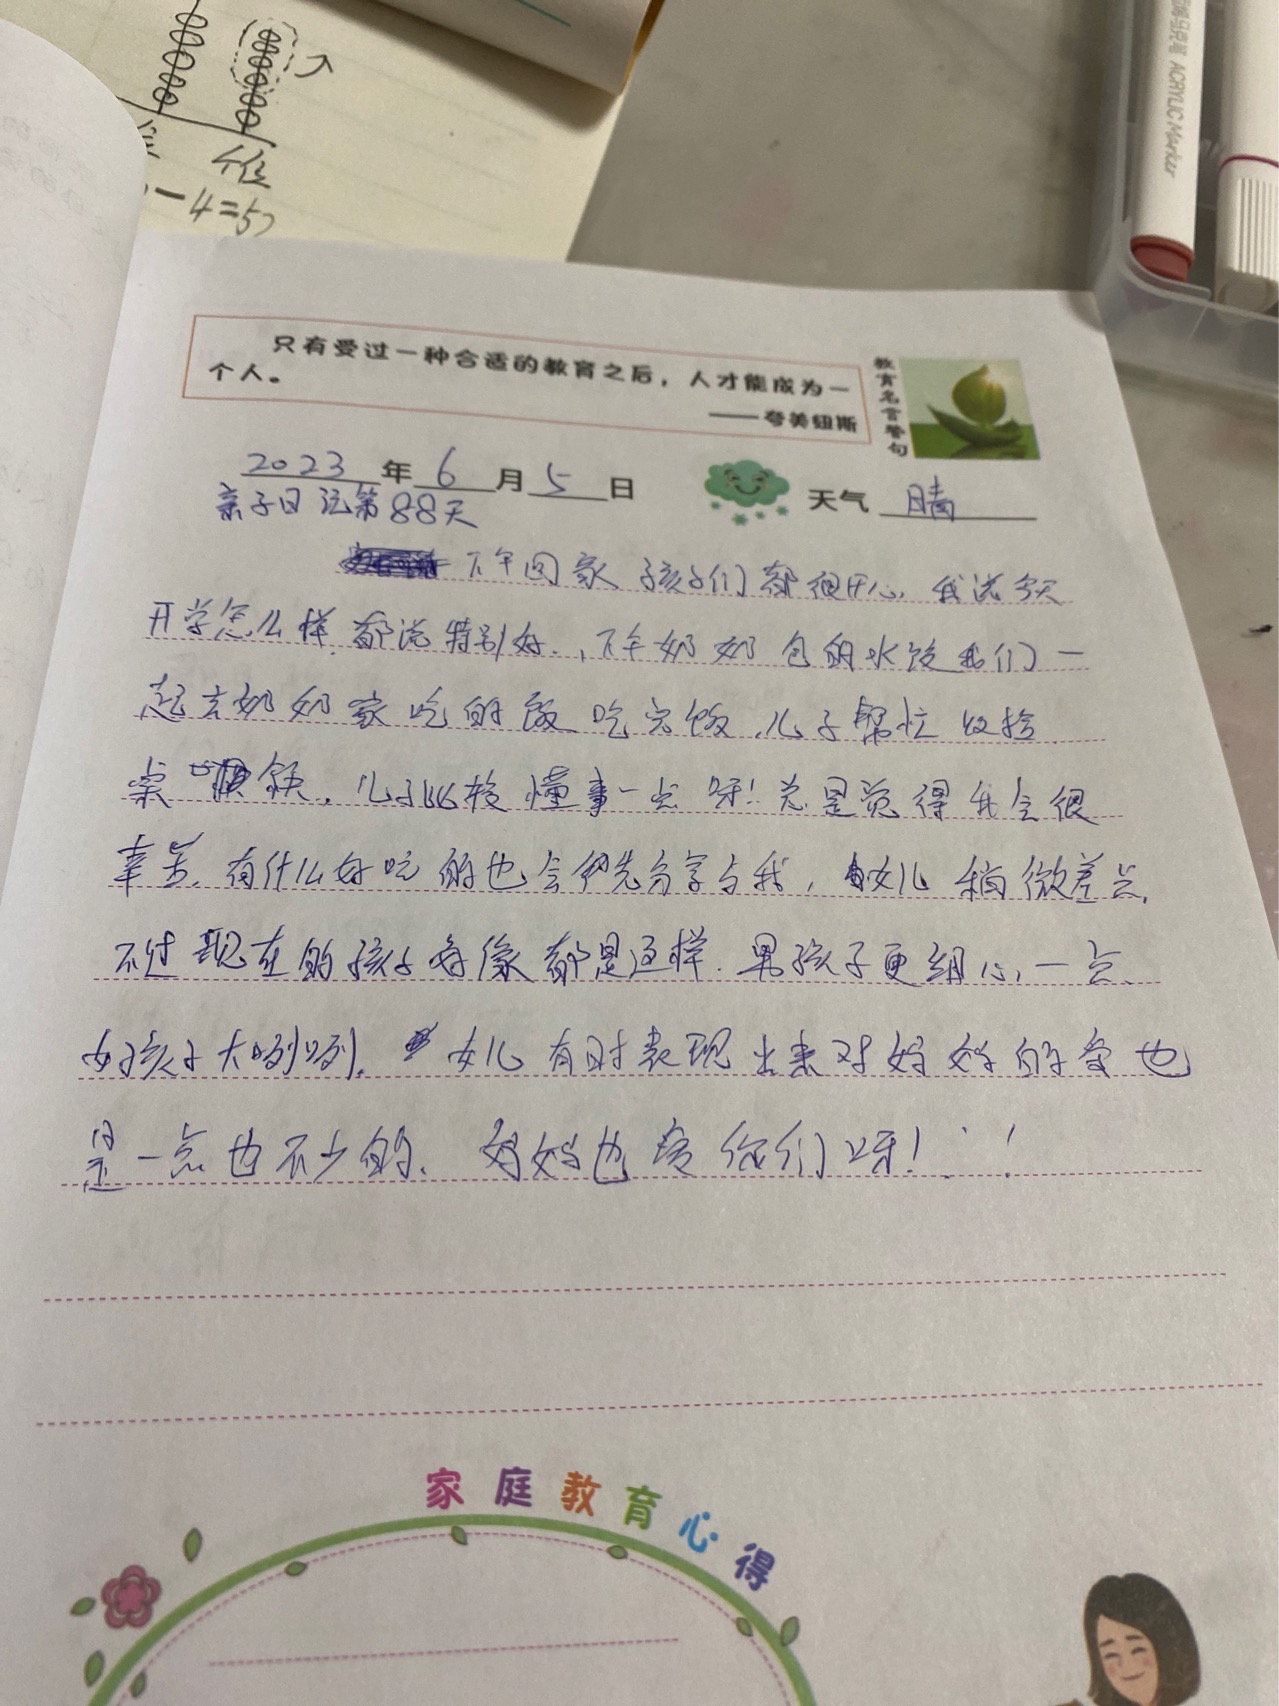 个位
-4=5
ACRYLIC Marker
只有受过一种合适的教育之后，人才能成为一
个人。
——夸美纽斯
教育名言警句
2023年6月5日
天气 晴
亲子日记第88天
下午回家孩子们都很开心，我说今天
开学怎么样，都说特别好，下午奶奶包的水饺我们一
起去奶奶家吃的饭吃完饭，儿子帮忙收拾
桌
儿子比较懂事一点呀！总是觉得我会很
辛苦，有什么好吃的也会先分享与我，女儿稍微差点，
不过现在的孩子好像都是这样，男孩子更细心一点、
女孩子大咧咧，女儿有时表现出来对妈妈的爱也
是一点也不少的，妈妈也爱你们呀！
家庭教育心得